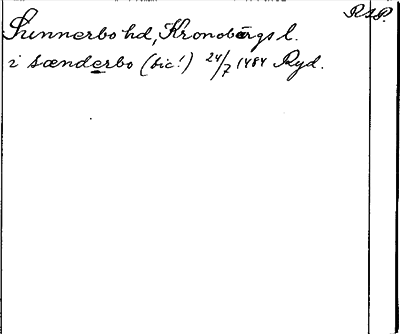 RAP.
Sunnerbo hd, Kronobergs l.
i sænderbo (sic!) 24/7 1484 Ryd.